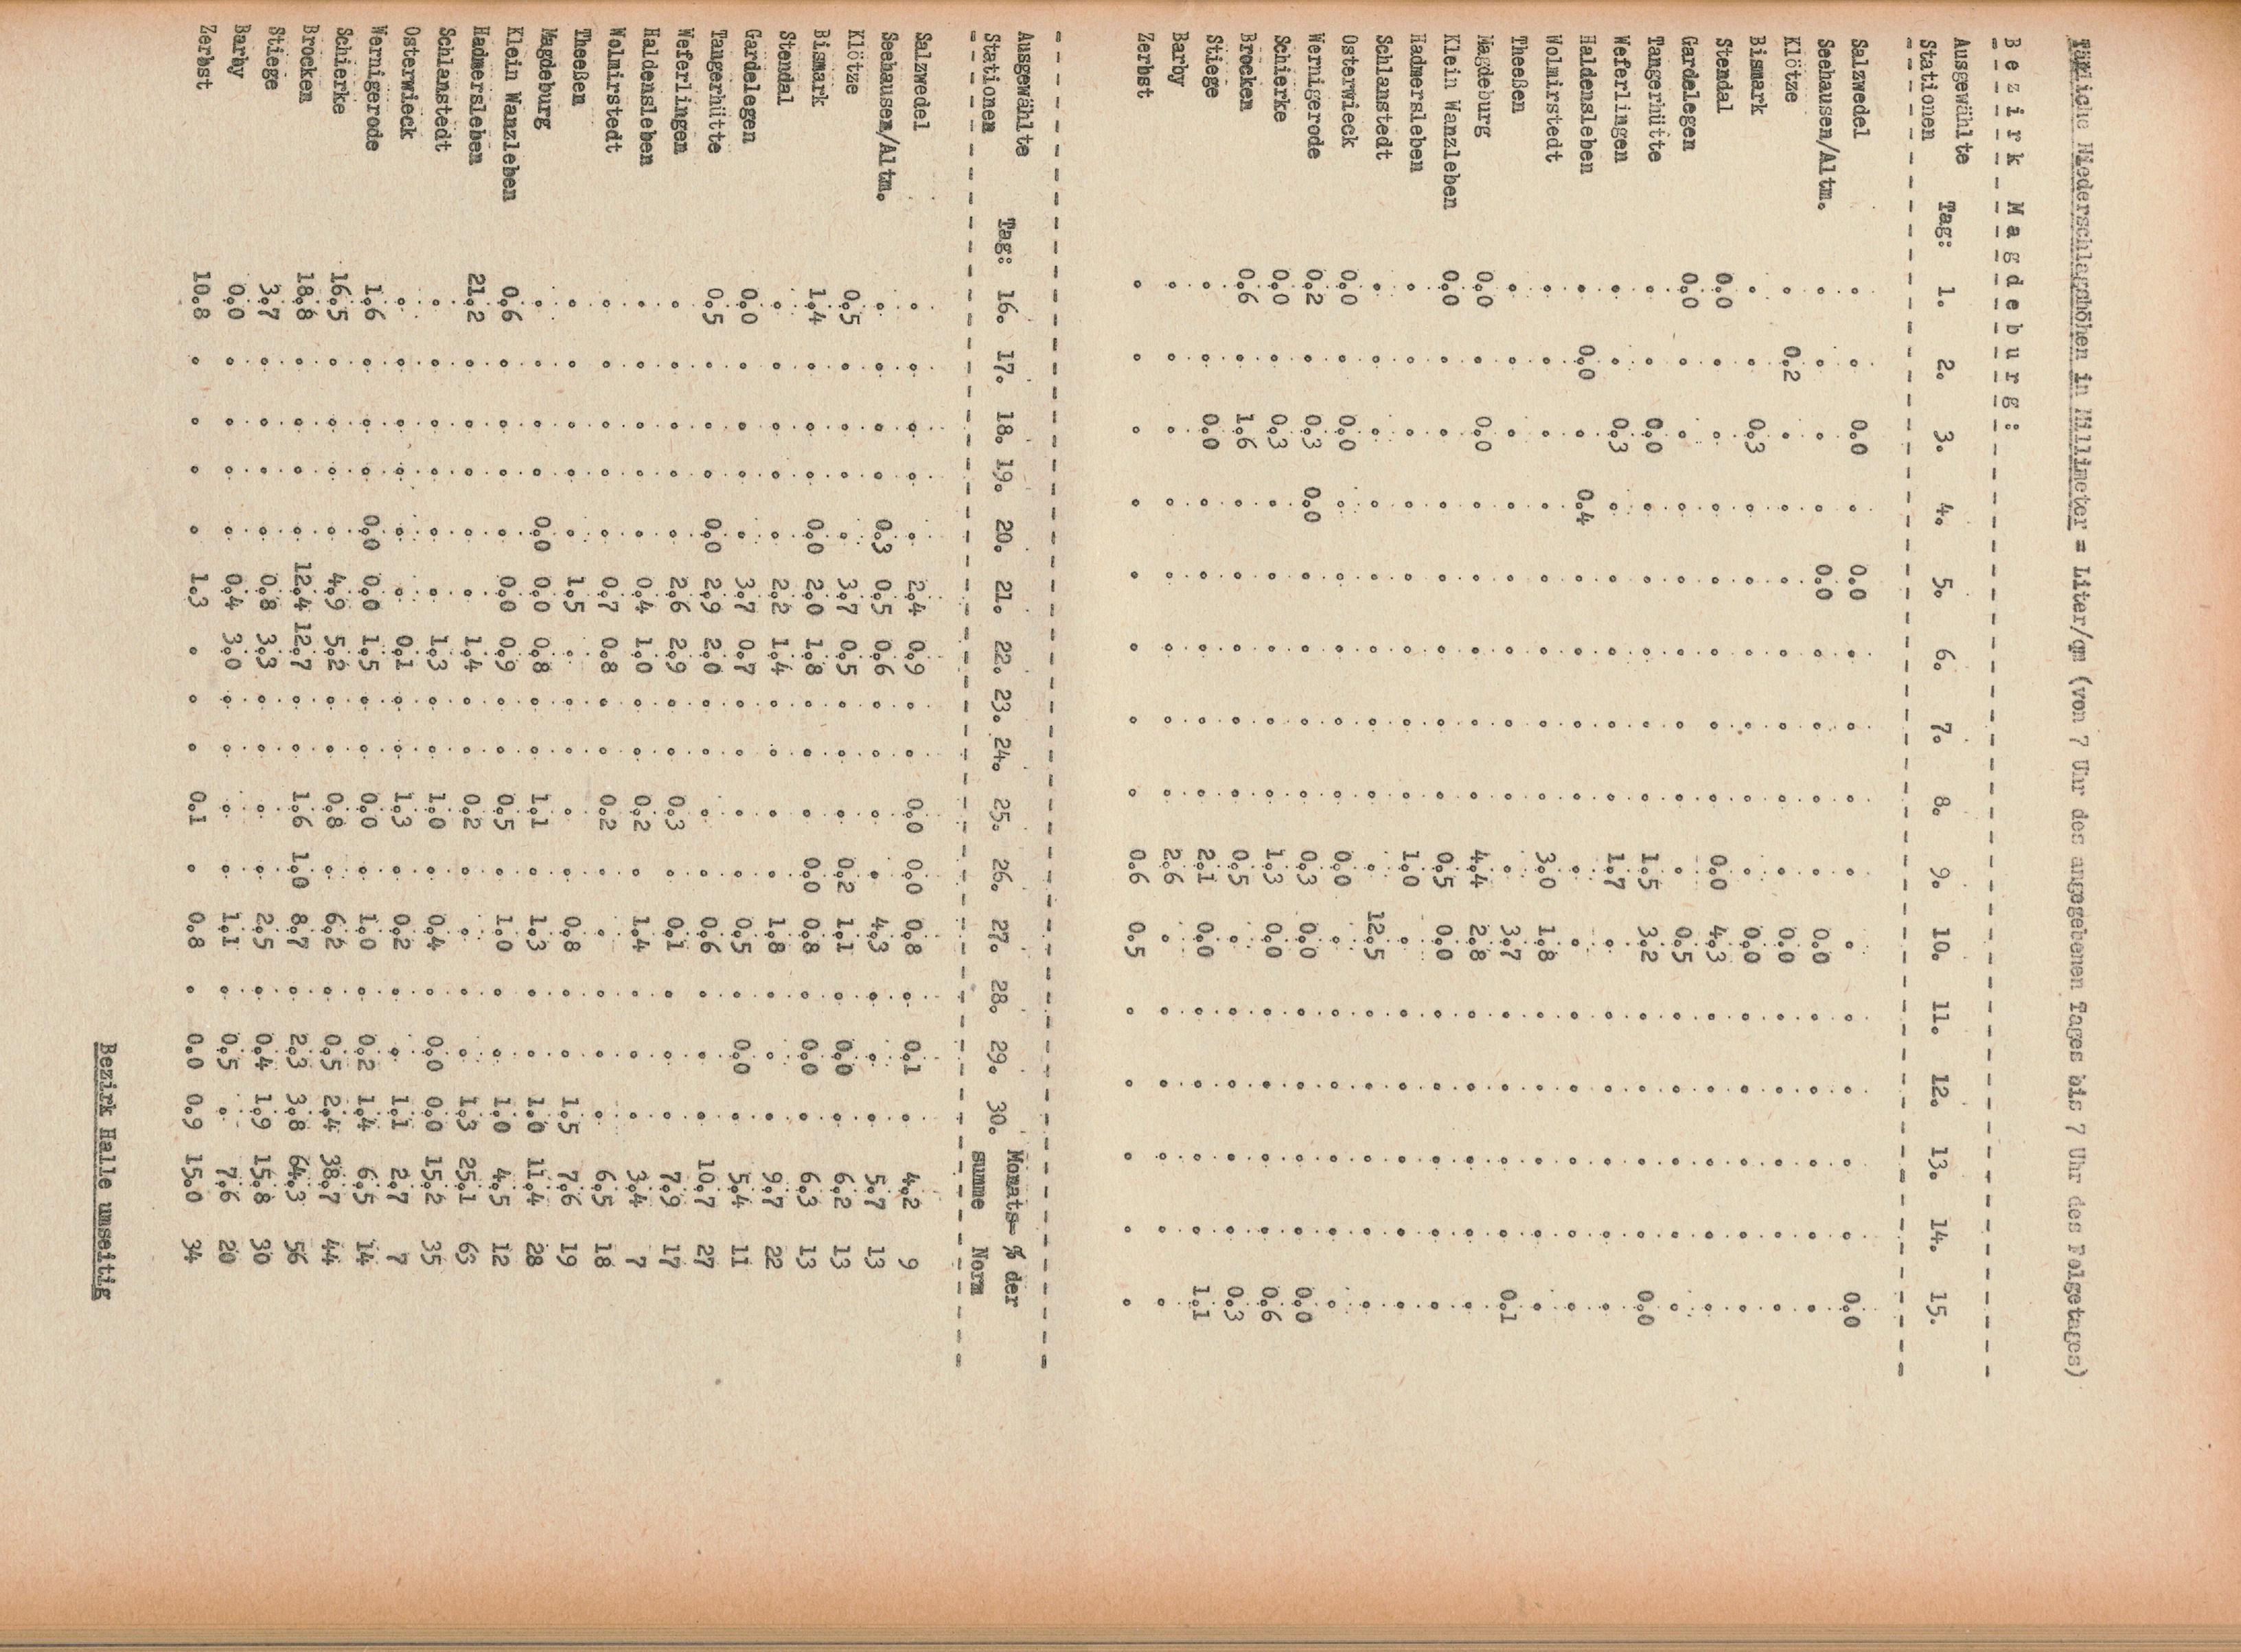 Tägliche Niederschlagshöhen in Millimeter = Liter/qm (von 7 Uhr des angegebenen Tages bis 7 Uhr des Folgetages)
Bezirk Magdeburg:
Ausgewählte
Stationen Tag: 1. 2. 3. 4. 5. 6. 7. 8. 9. 10. 11. 12. 13. 14. 15.
Salzwedel . . 0,0 . 0,0 . . . . . . . . . 0,0
Seehausen/Altm. . . . . 0,0 . . . . 0,0 . . . . .
Klötze . 0,2 . . . . . . . 0,0 . . . . .
Bismark . . 0,3 . . . . . . 0,0 . . . . .
Stendal 0,0 . . . . . . . 0,0 4,3 . . . . .
Gardelegen 0,0 . . . . . . . . 0,5 . . . . .
Tangerhütte . . 0,0 . . . . . 1,5 3,2 . . . . 0,0
Weferlingen . . 0,3 . . . . . 1,7 . . . . . .
Haldensleben . 0,0 . 0,4 . . . . . . . . . . .
Wolmirstedt . . . . . . . . 3,0 1,8 . . . . .
Theeßen . . . . . . . . . 3,7 . . . . 0,1
Magdeburg 0,0 . 0,0 . . . . . 4,4 2,8 . . . . .
Klein Wanzleben 0,0 . . . . . . . 0,5 0,0 . . . . .
Hadmersleben . . . . . . . . 1,0 . . . . . .
Schlanstedt . . . . . . . . . 12,5 . . . . .
Osterwieck 0,0 . 0,0 . . . . . 0,0 . . . . . .
Wernigerode 0,2 . 0,3 0,0 . . . . 0,3 0,0 . . . . 0,0
Schierke 0,0 . 0,3 . . . . . 1,3 0,0 . . . . 0,6
Brocken 0,6 . 1,6 . . . . . 0,5 . . . . . 0,3
Stiege . . 0,0 . . . . . 2,1 0,0 . . . . 1,1
Barby . . . . . . . . 2,6 . . . . . .
Zerbst . . . . . . . . 0.6 0.5 . . . . .
Ausgewählte Monats- % der
Stationen Tag: 16. 17. 18. 19. 20. 21. 22. 23. 24. 25. 26. 27. 28. 29. 30. summe Norm
Salzwedel . . . . . 2,4 0,9 . . 0,0 0,0 0,8 . 0,1 . 4,2 9
Seehausen/Altm. . . . . 0,3 0,5 0,6 . . . . 4,3 . . . 5,7 13
Klötze 0,5 . . . . 3,7 0,5 . . . 0,2 1,1 . 0,0 . 6,2 13
Bismark 1,4 . . . 0,0 2,0 1,8 . . . 0,0 0,8 . 0,0 . 6,3 13
Stendal . . . . . 2,2 1,4 . . . . 1,8 . . . 9,7 22
Gardelegen 0,0 . . . . 3,7 0,7 . . . . 0,5 . 0,0 . 5,4 11
Tangerhütte 0,5 . . . 0,0 2,9 2,0 . . . . 0,6 . . . 10,7 27
Weferlingen . . . . . 2,6 2,9 . . 0,3 . 0,1 . . . 7,9 17
Haldensleben . . . . . 0,4 1,0 . . 0,2 . 1,4 . . . 3,4 7
Wolmirstedt . . . . . 0,7 0,8 . . 0,2 . . . . . 6,5 18
Theeßen . . . . . 1,5 . . . . . 0,8 . . 1,5 7,6 19
Magdeburg . . . . 0,0 0,0 0,8 . . 1,1 . 1,3 . . 1,0 11,4 28
Klein Wanzleben 0,6 . . . . 0,0 0,9 . . 0,5 . 1,0 . . 1,0 4,5 12
Hadmersleben 21,2 . . . . . 1,4 . . 0,2 . . . . 1,3 25,1 63
Schlanstedt . . . . . . 1,3 . . 1,0 . 0,4 . 0,0 0,0 15,2 35
Osterwieck . . . . . . 0,1 . . 1,3 . 0,2 . . 1,1 2,7 7
Wernigerode 1,6 . . . 0,0 0,0 1,5 . . 0,0 . 1,0 . 0,2 1,4 6,5 14
Schierke 16,5 . . . . 4,9 5,2 . . 0,8 . 6,2 . 0,5 2,4 38,7 44
Brocken 18,8 . . . . 12,4 12,7 . . 1,6 1,0 8,7 . 2,3 3,8 64,3 56
Stiege 3,7 . . . . 0,8 3,3 . . . . 2,5 . 0,4 1,9 15,8 30
Barby 0,0 . . . . 0,4 3,0 . . . . 1,1 . 0,5 . 7,6 20
Zerbst 10.8 . . . . 1.3 . . . 0.1 . 0.8 . 0.0 0.9 15.0 34
Bezirk Halle umseitig